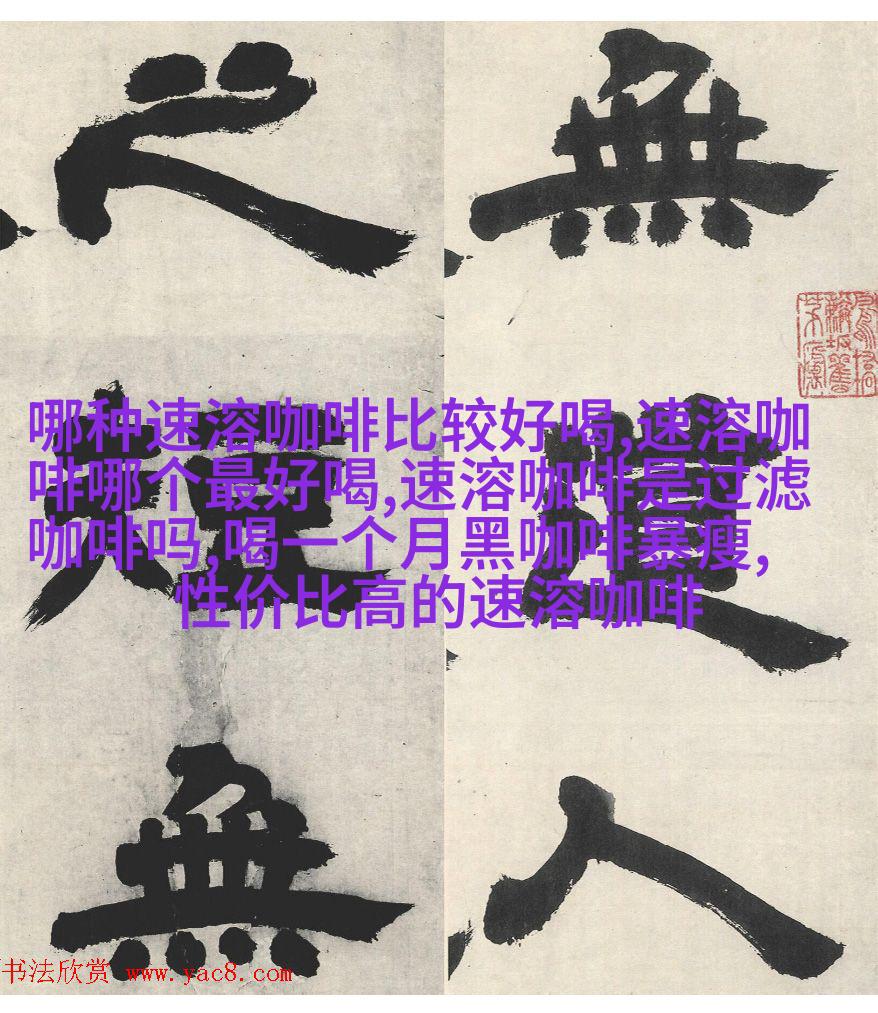 無道人
之短無
哪种速溶咖啡比较好喝,速溶咖
啡哪个最好喝,速溶咖啡是过滤
咖啡吗,喝一个月黑咖啡暴瘦,
性价比高的速溶咖啡
书法欣赏 www.yac8.com